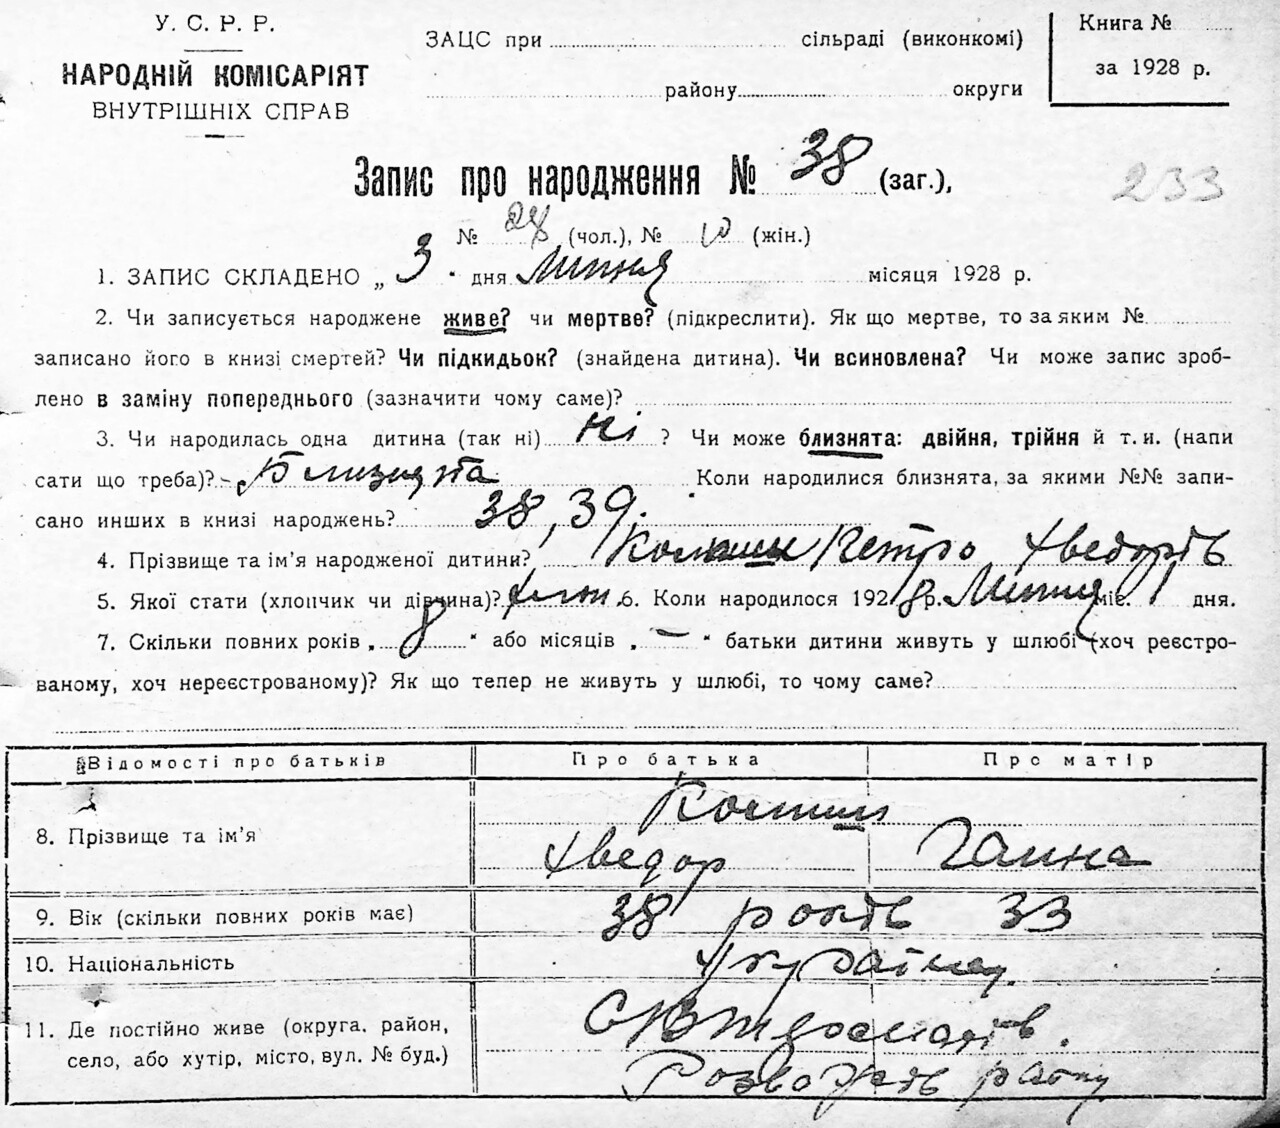 У. С. Р. Р.
НАРОДНІЙ КОМІСАРІЯТ
ВНУТРІШНІХ СПРАВ
ЗАЦС при сільраді (виконкомі)
району округи
Книга №
за 1928 р.
Запис про народження № 38 (заг.),
233
№ 28 (чол.), № 10 (жін.)
1. ЗАПИС СКЛАДЕНО „ 3 " дня Липня місяця 1928 р.
2. Чи записується народжене живе? чи мертве? (підкреслити). Як що мертве, то за яким №
записано його в книзі смертей? Чи підкидьок? (знайдена дитина). Чи всиновлена? Чи може запис зроб-
лено в заміну попереднього (зазначити чому саме)?
3. Чи народилась одна дитина (так ні) ні ? Чи може близнята: двійня, трійня й т. и. (напи
сати що треба)? Близнята Коли народилися близнята, за якими №№ запи-
сано инших в книзі народжень? 38, 39.
4. Прізвище та ім'я народженої дитини? Петро Хведорів
5. Якої стати (хлопчик чи дівчина)? 6. Коли народилося 1928 р. Липня міс. 1 дня.
7. Скільки повних років „ 8 " або місяців „ — " батьки дитини живуть у шлюбі (хоч реєстро-
ваному, хоч нереєстрованому)? Як що тепер не живуть у шлюбі, то чому саме?
Відомості про батьків Про батька Про матір
8. Прізвище та ім'я
Хведор Ганна
9. Вік (скільки повних років має) 38 років 33
10. Національність
11. Де постійно живе (округа, район,
село, або хутір, місто, вул. № буд.)
Розважів